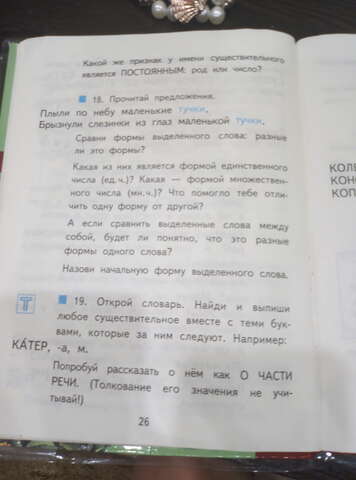 Какой же признак у имени существительного
является ПОСТОЯННЫМ: род или число?
18. Прочитай предложения.
Плыли по небу маленькие тучки.
Брызнули слезинки из глаз маленькой тучки.
Сравни формы выделенного слова: разные
ли это формы?
Какая из них является формой единственного
числа (ед.ч.)? Какая — формой множествен-
ного числа (мн.ч.)? Что помогло тебе отли-
чить одну форму от другой?
А если сравнить выделенные слова между
собой, будет ли понятно, что это разные
формы одного слова?
Назови начальную форму выделенного слова.
Т
19. Открой словарь. Найди и выпиши
любое существительное вместе с теми бук-
вами, которые за ним следуют. Например:
КА́ТЕР, -а, м.
Попробуй рассказать о нём как О ЧАСТИ
РЕЧИ. (Толкование его значения не учи-
тывай!)
26